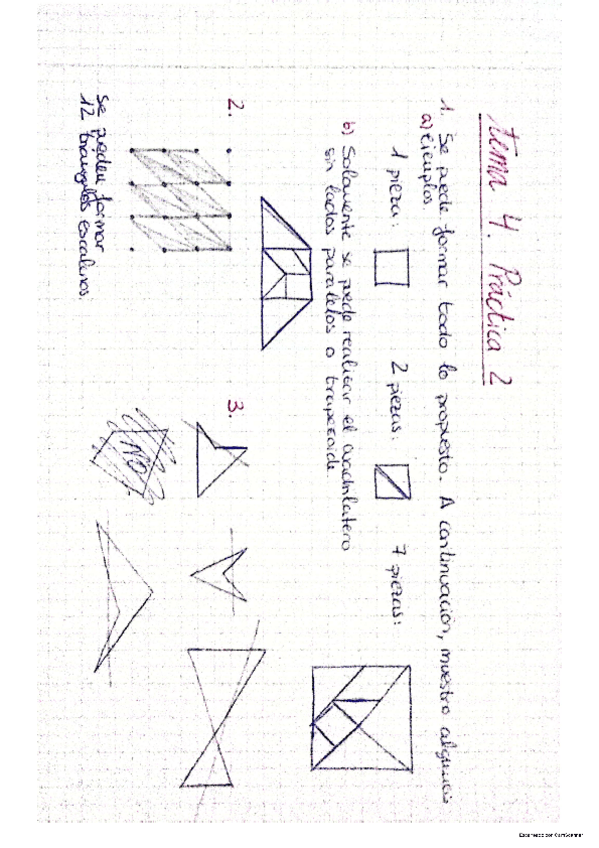 Tema 4. Práctica 2
1. Se puede formar todo lo propuesto. A continuación, muestro algunos
a) Ejemplos.
1 pieza:
2 piezas:
7 piezas:
b) Solamente se puede realizar el cuadrilatero
sin lados paralelos o trapezoide.
2.
3.
NO
Se pueden formar
12 triangulos escalenos.
Escaneado con CamScanner